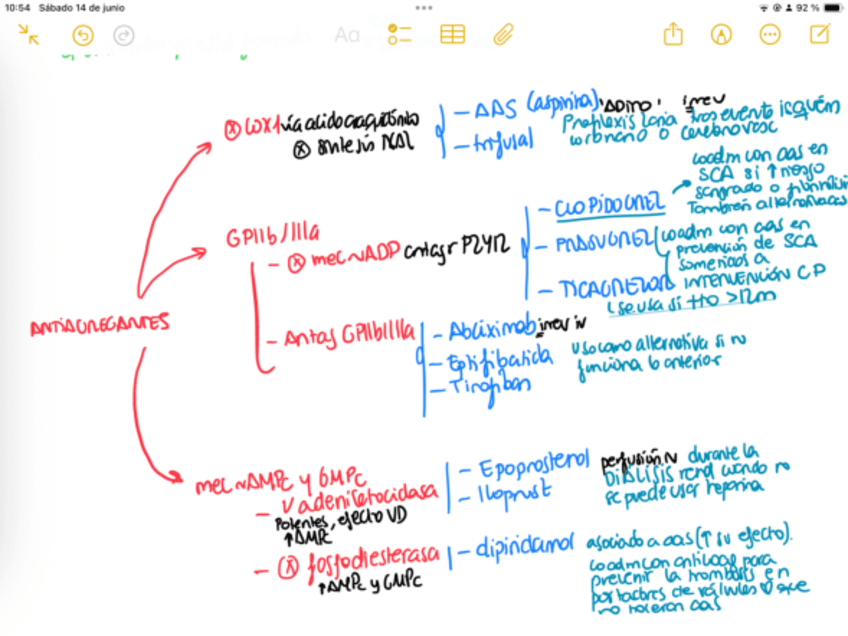 10:54 Sábado 14 de junio
92 %
Aa
ⓧ COX1 vía acido araquidónico
ⓧ síntesis
- AAS (aspirina) 'ADIRO' irrev
- trifusal
Profilaxis tras evento isquém
o cerebrovasc
GPIIb/IIIa
- ⓧ mec ADP antagr P2Y12
- CLOPIDOGREL
coadm con aas en
SCA si ↑ riesgo
sangrado o fibrinólisis
También alternativas
- PRASUGREL
- TICAGRELOR
coadm con aas en
prevención de SCA
sometidos a
INTERVENCIÓN C.P
se usa si tto >12m
ANTIAGREGANTES
- Antag GPIIb/IIIa
- Abciximab irrev iv
- Eptifibatida
- Tirofiban
uso como alternativa si no
funciona lo anterior
mec AMPc y GMPc
- adenilatociclasa
Potentes, efecto VD
↑AMPc
- Epoprostenol
- Iloprost
perfusión durante la
DIÁLISIS renal cuando no
se puede usar heparina
- ⓧ fosfodiesterasa
↑AMPc y GMPc
- dipiridamol
asociado a aas (↑ su efecto).
coadm con anticoag para
prevenir la trombosis en
portadores de válvulas que
no toleran aas